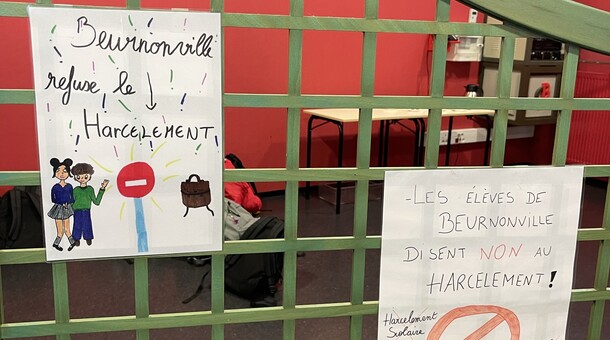 Beurnonville
refuse le
HARCELEMENT
-LES ÉLÈVES DE
BEURNONVILLE
DISENT NON AU
HARCELEMENT!
Harcelement
Scolaire